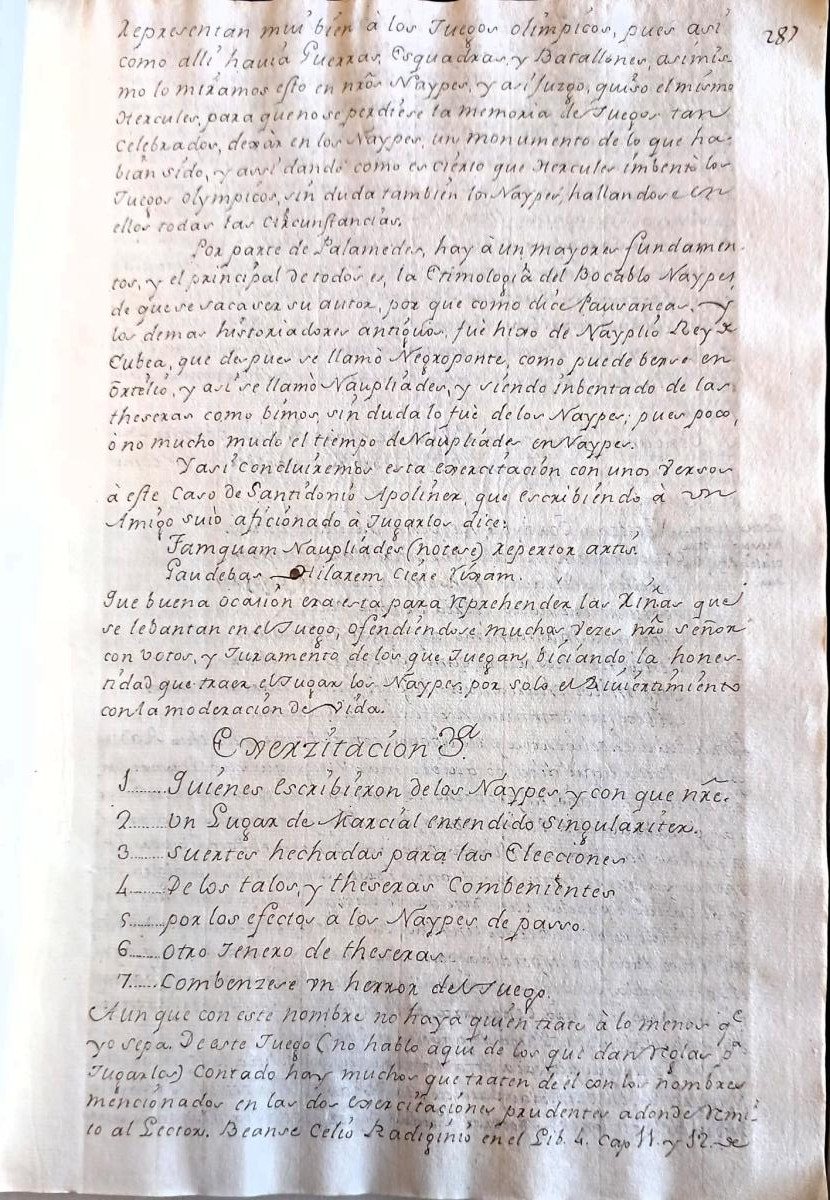 287
Representan mui bien à los Juegos olimpicos, pues asi
como alli havia Guerras, Esquadras, y Batallones, asimis
mo lo miramos esto en nrõs Naypes, y asi juzgo, quiso el mismo
Hercules, para que no se perdiese la memoria de Juegos tan
Celebrados, dexàr en los Naypes, un monumento de lo que ha-
bian sido, y assi dando como es cierto que Hercules imbentò los
Juegos olympicos, sin duda tambien los Naypes, hallandose en
ellos todas las circunstancias.
Por parte de Palamedes, hay àun mayores fundamen-
tos, y el principal de todos es, la Etimologia del Bocablo Naypes,
de que se saca ser su autor, por que como dice Pausanças, y
los demas historiadores antiguos, fuè hixo de Nayplio Rey de
Eubea, que despues se llamò Negroponte, como puede berse en
Ortelio, y asi se llamò Naupliades, y siendo inbentado de las
theseras como bimos, sin duda lo fuè de los Naypes; pues poco,
ò no mucho mudò el tiempo de Naupliades en Naypes.
Y asi concluiremos esta exercitacion con unos versos
à este Caso de Santidonio Apoliner, que escribiendo à un
Amigo suio aficionado à Jugarlos dice:
Tamquam Naupliades (notese) repertor artis
Gaudebas Hilarem ciere rixam.
Que buena ocasiòn era esta para reprehender las Riñas que
se lebantan en el Juego, ofendiendose muchas vezes nrõ señor
con votos, y Juramento de los que Juegan, biciando la hones-
tidad que traer el Jugar los Naypes, por solo el Divertimiento
con la moderaciòn de vida.
Exerzitacion 3ª
1........Quienes escribieron de los Naypes, y con que nrẽ.
2........Un Lugar de Marcial entendido singulariter.
3........Suertes hechadas para las Elecciones
4........De los talos, y theseras Combenientes
5........por los efectos à los Naypes de passo.
6........Otro Jenero de theseras
7........Combenzese un herror del Juego.
Aunque con este nombre no haya quien trate à lo menos qe
yo sepa. De este Juego (no hablo aqui de los que dan reglas pª
Jugarlos) Contado hay muchos que traten de el con los nombres
mencionados en las dos exercitaciones prudentes adonde remi-
to al Lector. Beanse Celio Radiginio en el Lib. 4. Cap 11. y 12. de